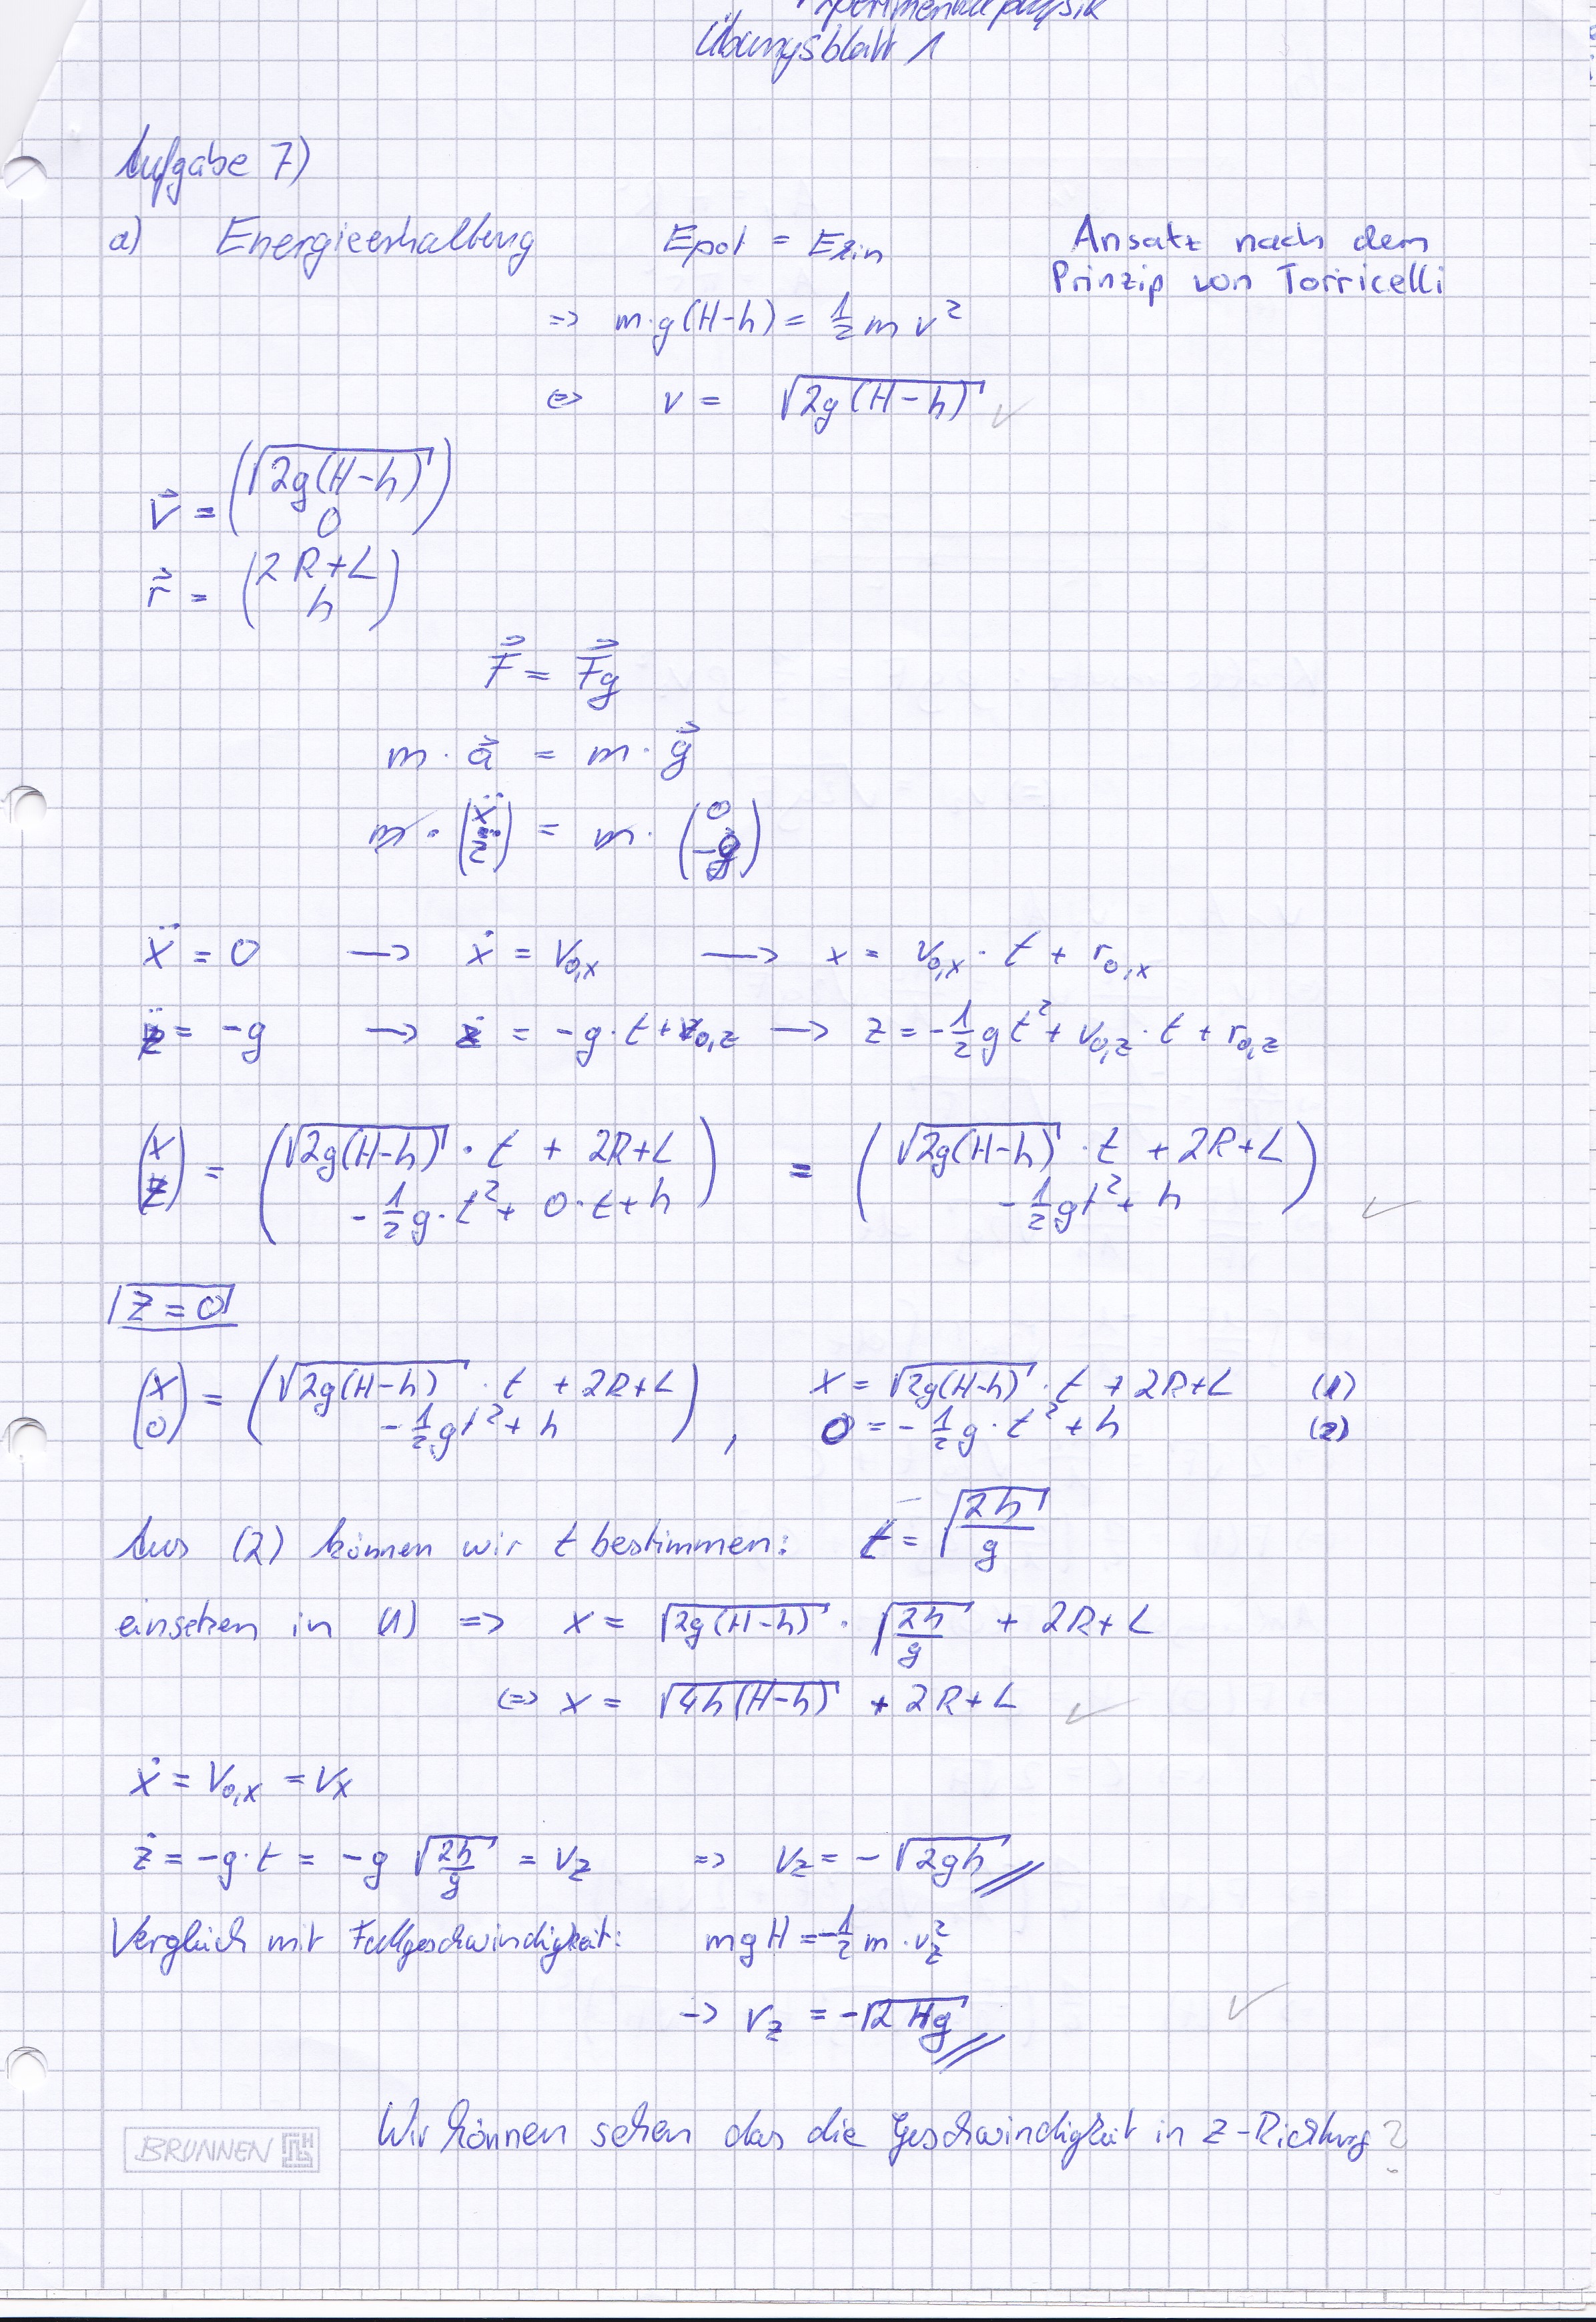 Experimentalphysik
Übungsblatt 1
Aufgabe 7)
a) Energieerhaltung Epot = Ekin Ansatz nach dem
Prinzip von Torricelli
=> m·g(H-h) = 1/2 m v²
<=> v = √(2g(H-h)) ✓
v⃗ = (√(2g(H-h)) ; 0)
r⃗ = (2R+L ; h)
F⃗ = F⃗g
m · a⃗ = m · g⃗
m · (ẍ ; z̈) = m · (0 ; -g)
ẍ = 0 → ẋ = v₀,x → x = v₀,x · t + r₀,x
z̈ = -g → ż = -g · t + v₀,z → z = -1/2 g t² + v₀,z · t + r₀,z
(x ; z) = (√(2g(H-h)) · t + 2R+L ; -1/2 g · t² + 0 · t + h) = (√(2g(H-h)) · t + 2R+L ; -1/2 g t² + h) ✓
z = 0
(x ; 0) = (√(2g(H-h)) · t + 2R+L ; -1/2 g t² + h) , x = √(2g(H-h)) · t + 2R+L (1)
0 = -1/2 g · t² + h (2)
Aus (2) können wir t bestimmen: t = √(2h/g)
einsetzen in (1) => x = √(2g(H-h)) · √(2h/g) + 2R+L
<=> x = √(4h(H-h)) + 2R+L ✓
ẋ = v₀,x = vx
ż = -g·t = -g √(2h/g) = vz => vz = -√(2gh)
Vergleich mit Fallgeschwindigkeit: mgH = -1/2 m · vz²
-> vz = -√(2Hg) ✓
Wir können sehen das die Geschwindigkeit in z-Richtung ?
BRUNNEN